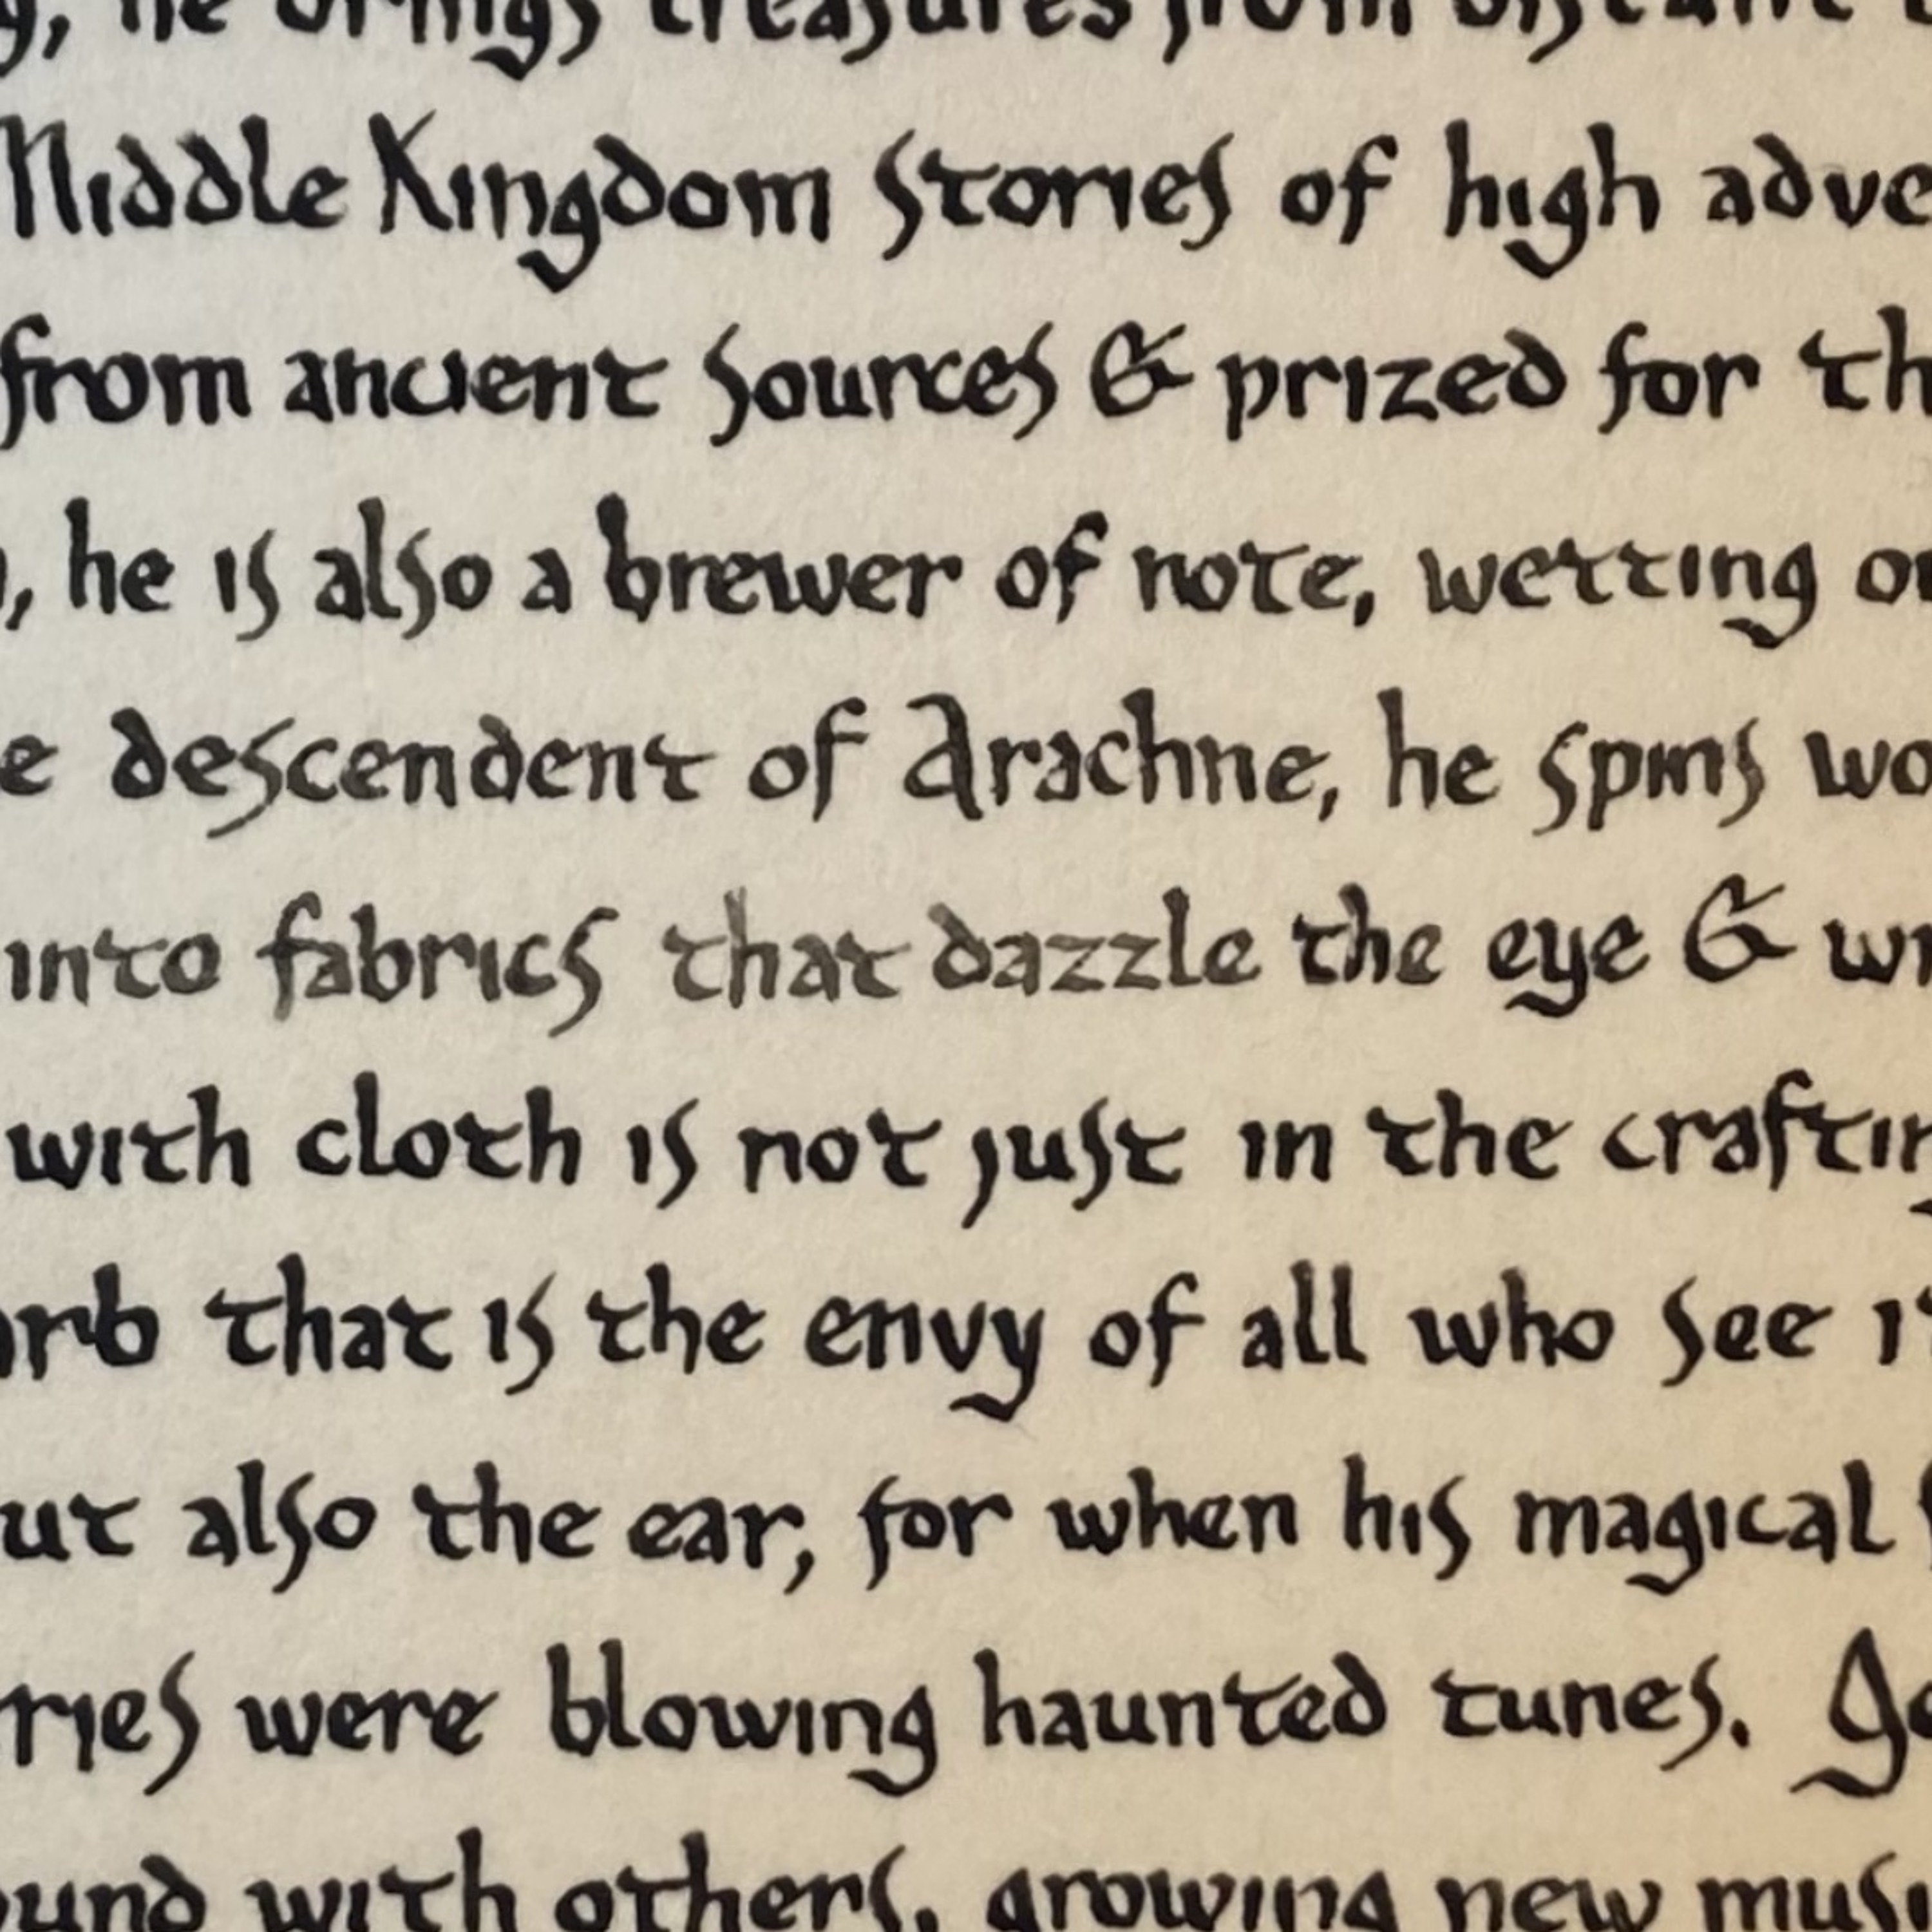 he brings treasures from distant
Middle Kingdom stories of high adve
from ancient sources & prized for th
, he is also a brewer of note, wetting
e descendent of Arachne, he spins wo
into fabrics that dazzle the eye & wr
with cloth is not just in the craftin
arb that is the envy of all who see it
ut also the ear, for when his magical
ries were blowing haunted tunes. Go
ound with others, growing new musi